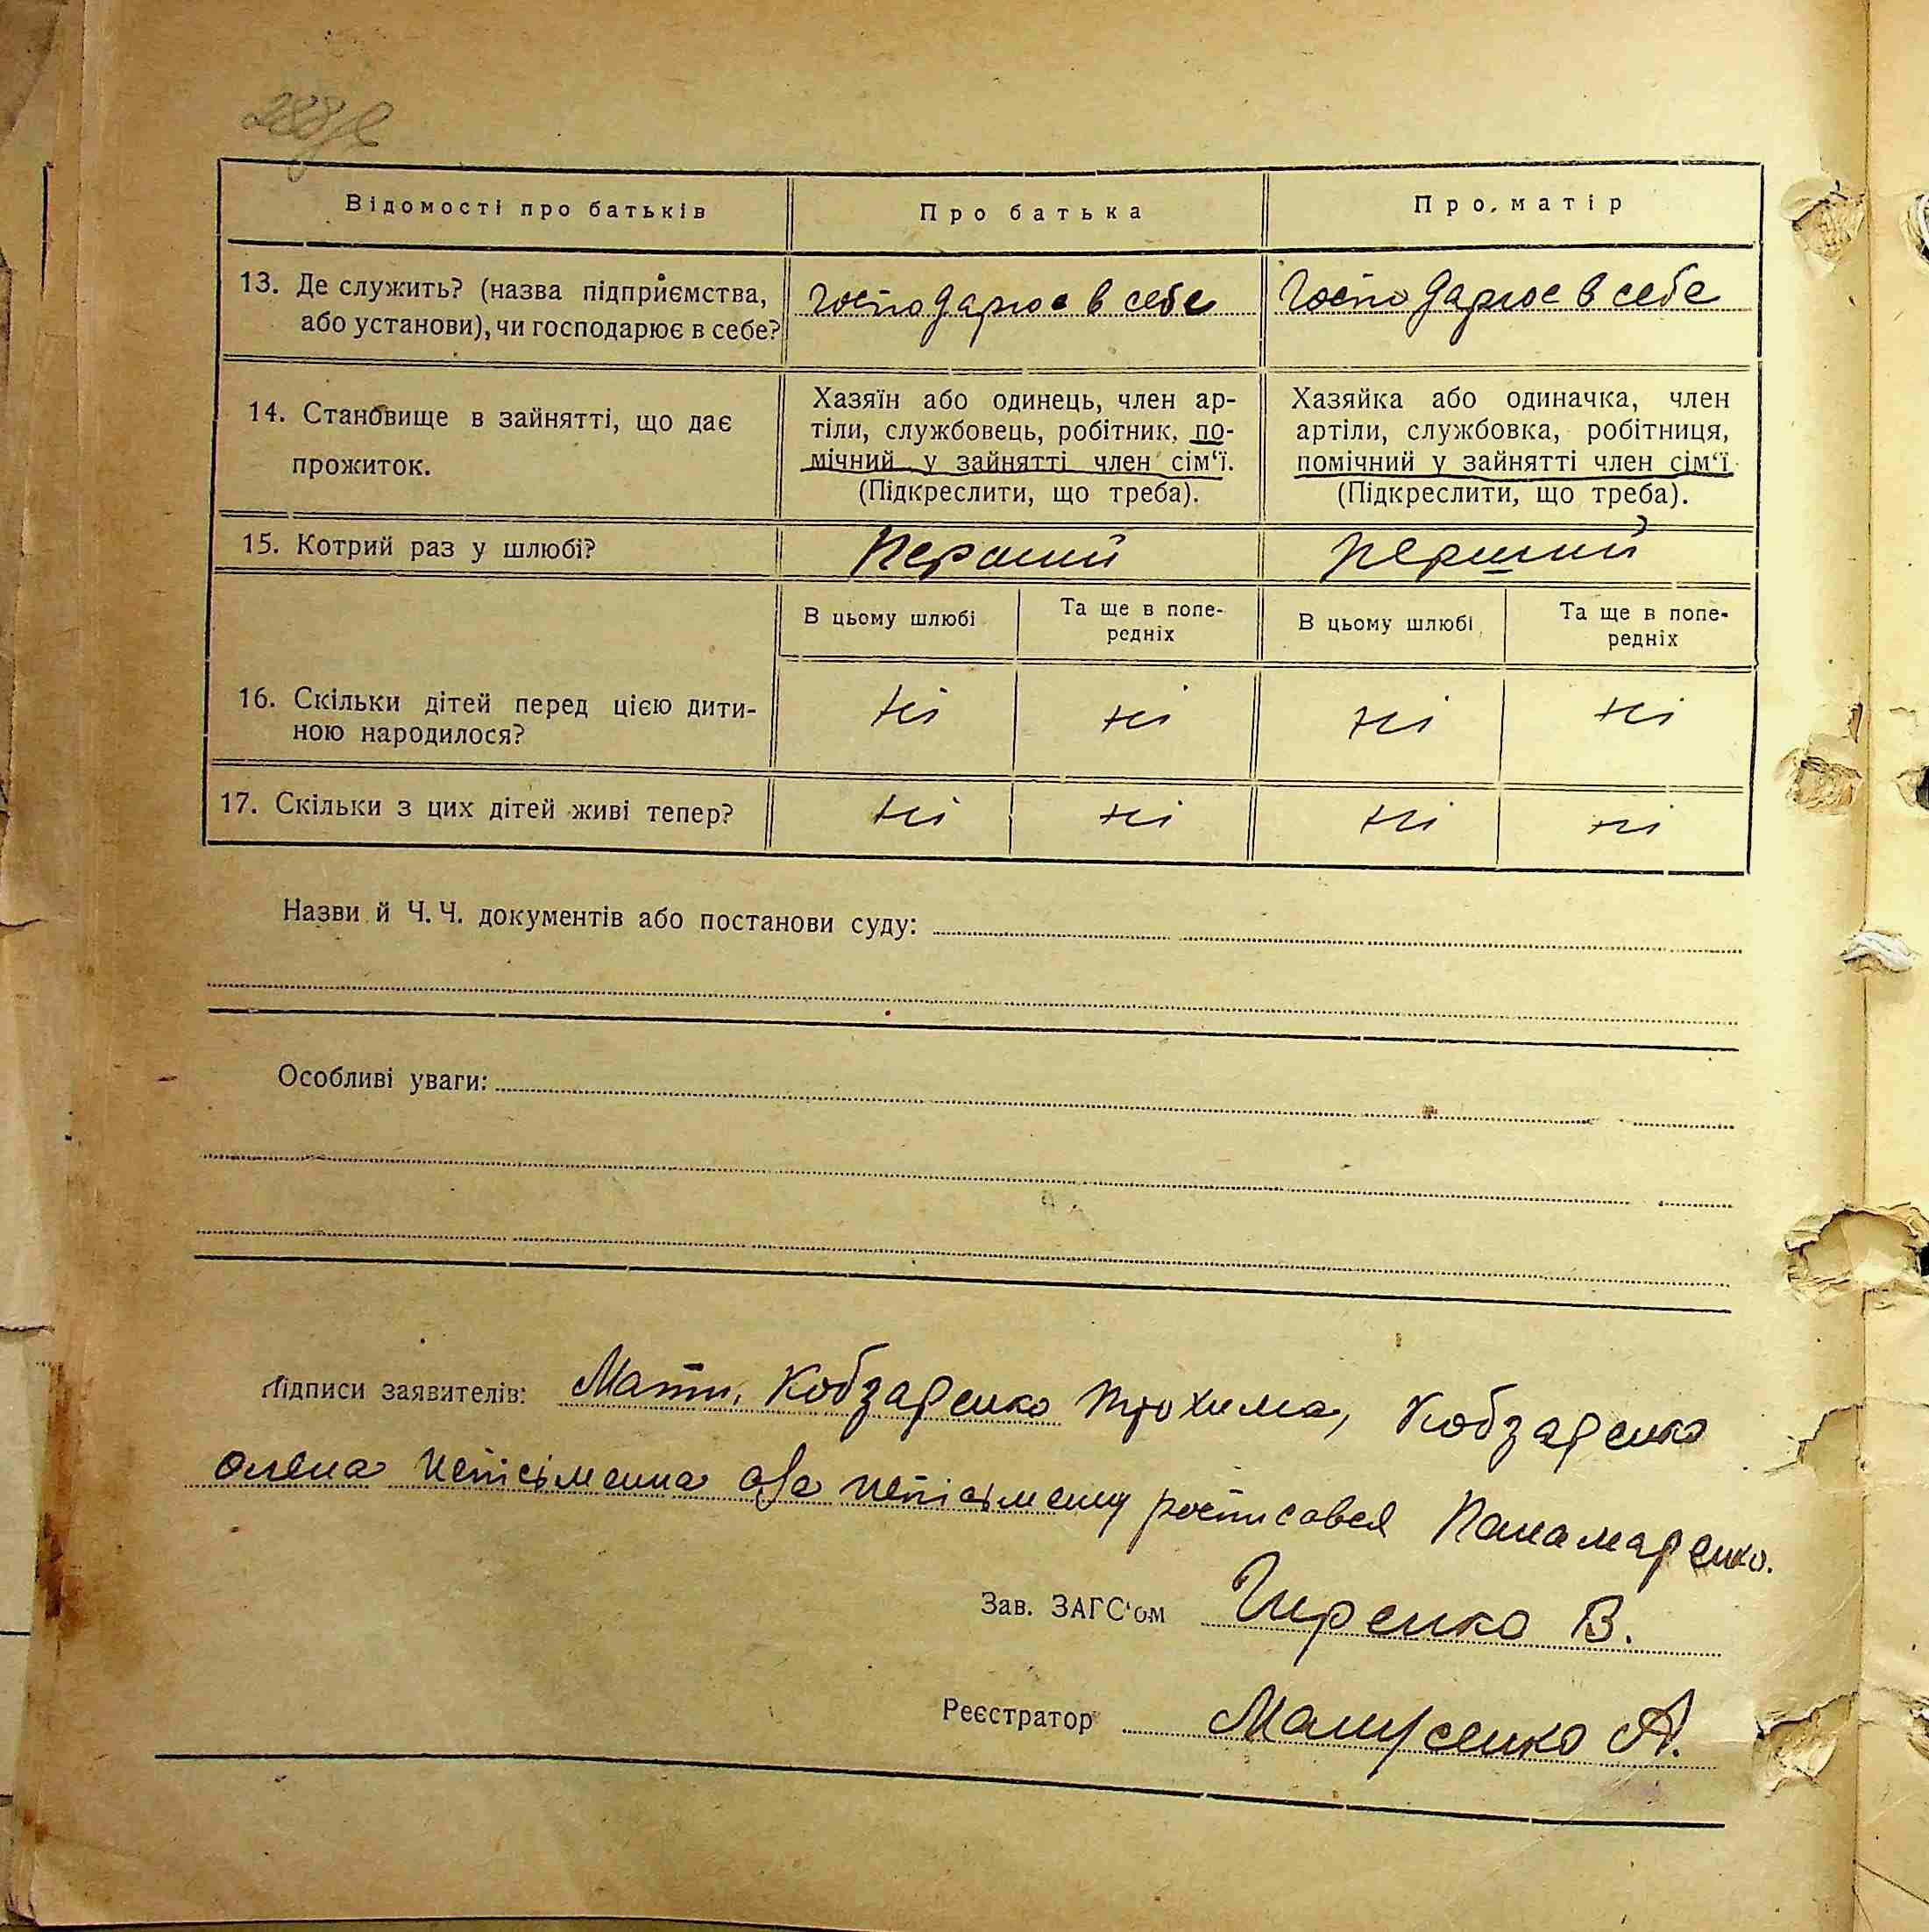 Відомості про батьків
Про батька
Про матір
13. Де служить? (назва підприємства,
або установи), чи господарює в себе?
господарює в себе
господарює в себе
14. Становище в зайнятті, що дає
прожиток.
Хазяїн або одинець, член ар-
тіли, службовець, робітник, по-
мічний у зайнятті член сім‘ї.
(Підкреслити, що треба).
Хазяйка або одиначка, член
артіли, службовка, робітниця,
помічний у зайнятті член сім‘ї
(Підкреслити, що треба).
15. Котрий раз у шлюбі?
Перший
перший
В цьому шлюбі
Та ще в попе-
редніх
В цьому шлюбі
Та ще в попе-
редніх
16. Скільки дітей перед цією дити-
ною народилося?
ні
ні
ні
ні
17. Скільки з цих дітей живі тепер?
ні
ні
ні
ні
Назви й Ч. Ч. документів або постанови суду:
Особливі уваги:
Підписи заявителів: Мати, Кобзаренко Трохима, Кобзаренко
олена непісьменна за непісьмену росписався Панамаренко.
Зав. ЗАГС‘ом Гиренко В.
Реєстратор А.